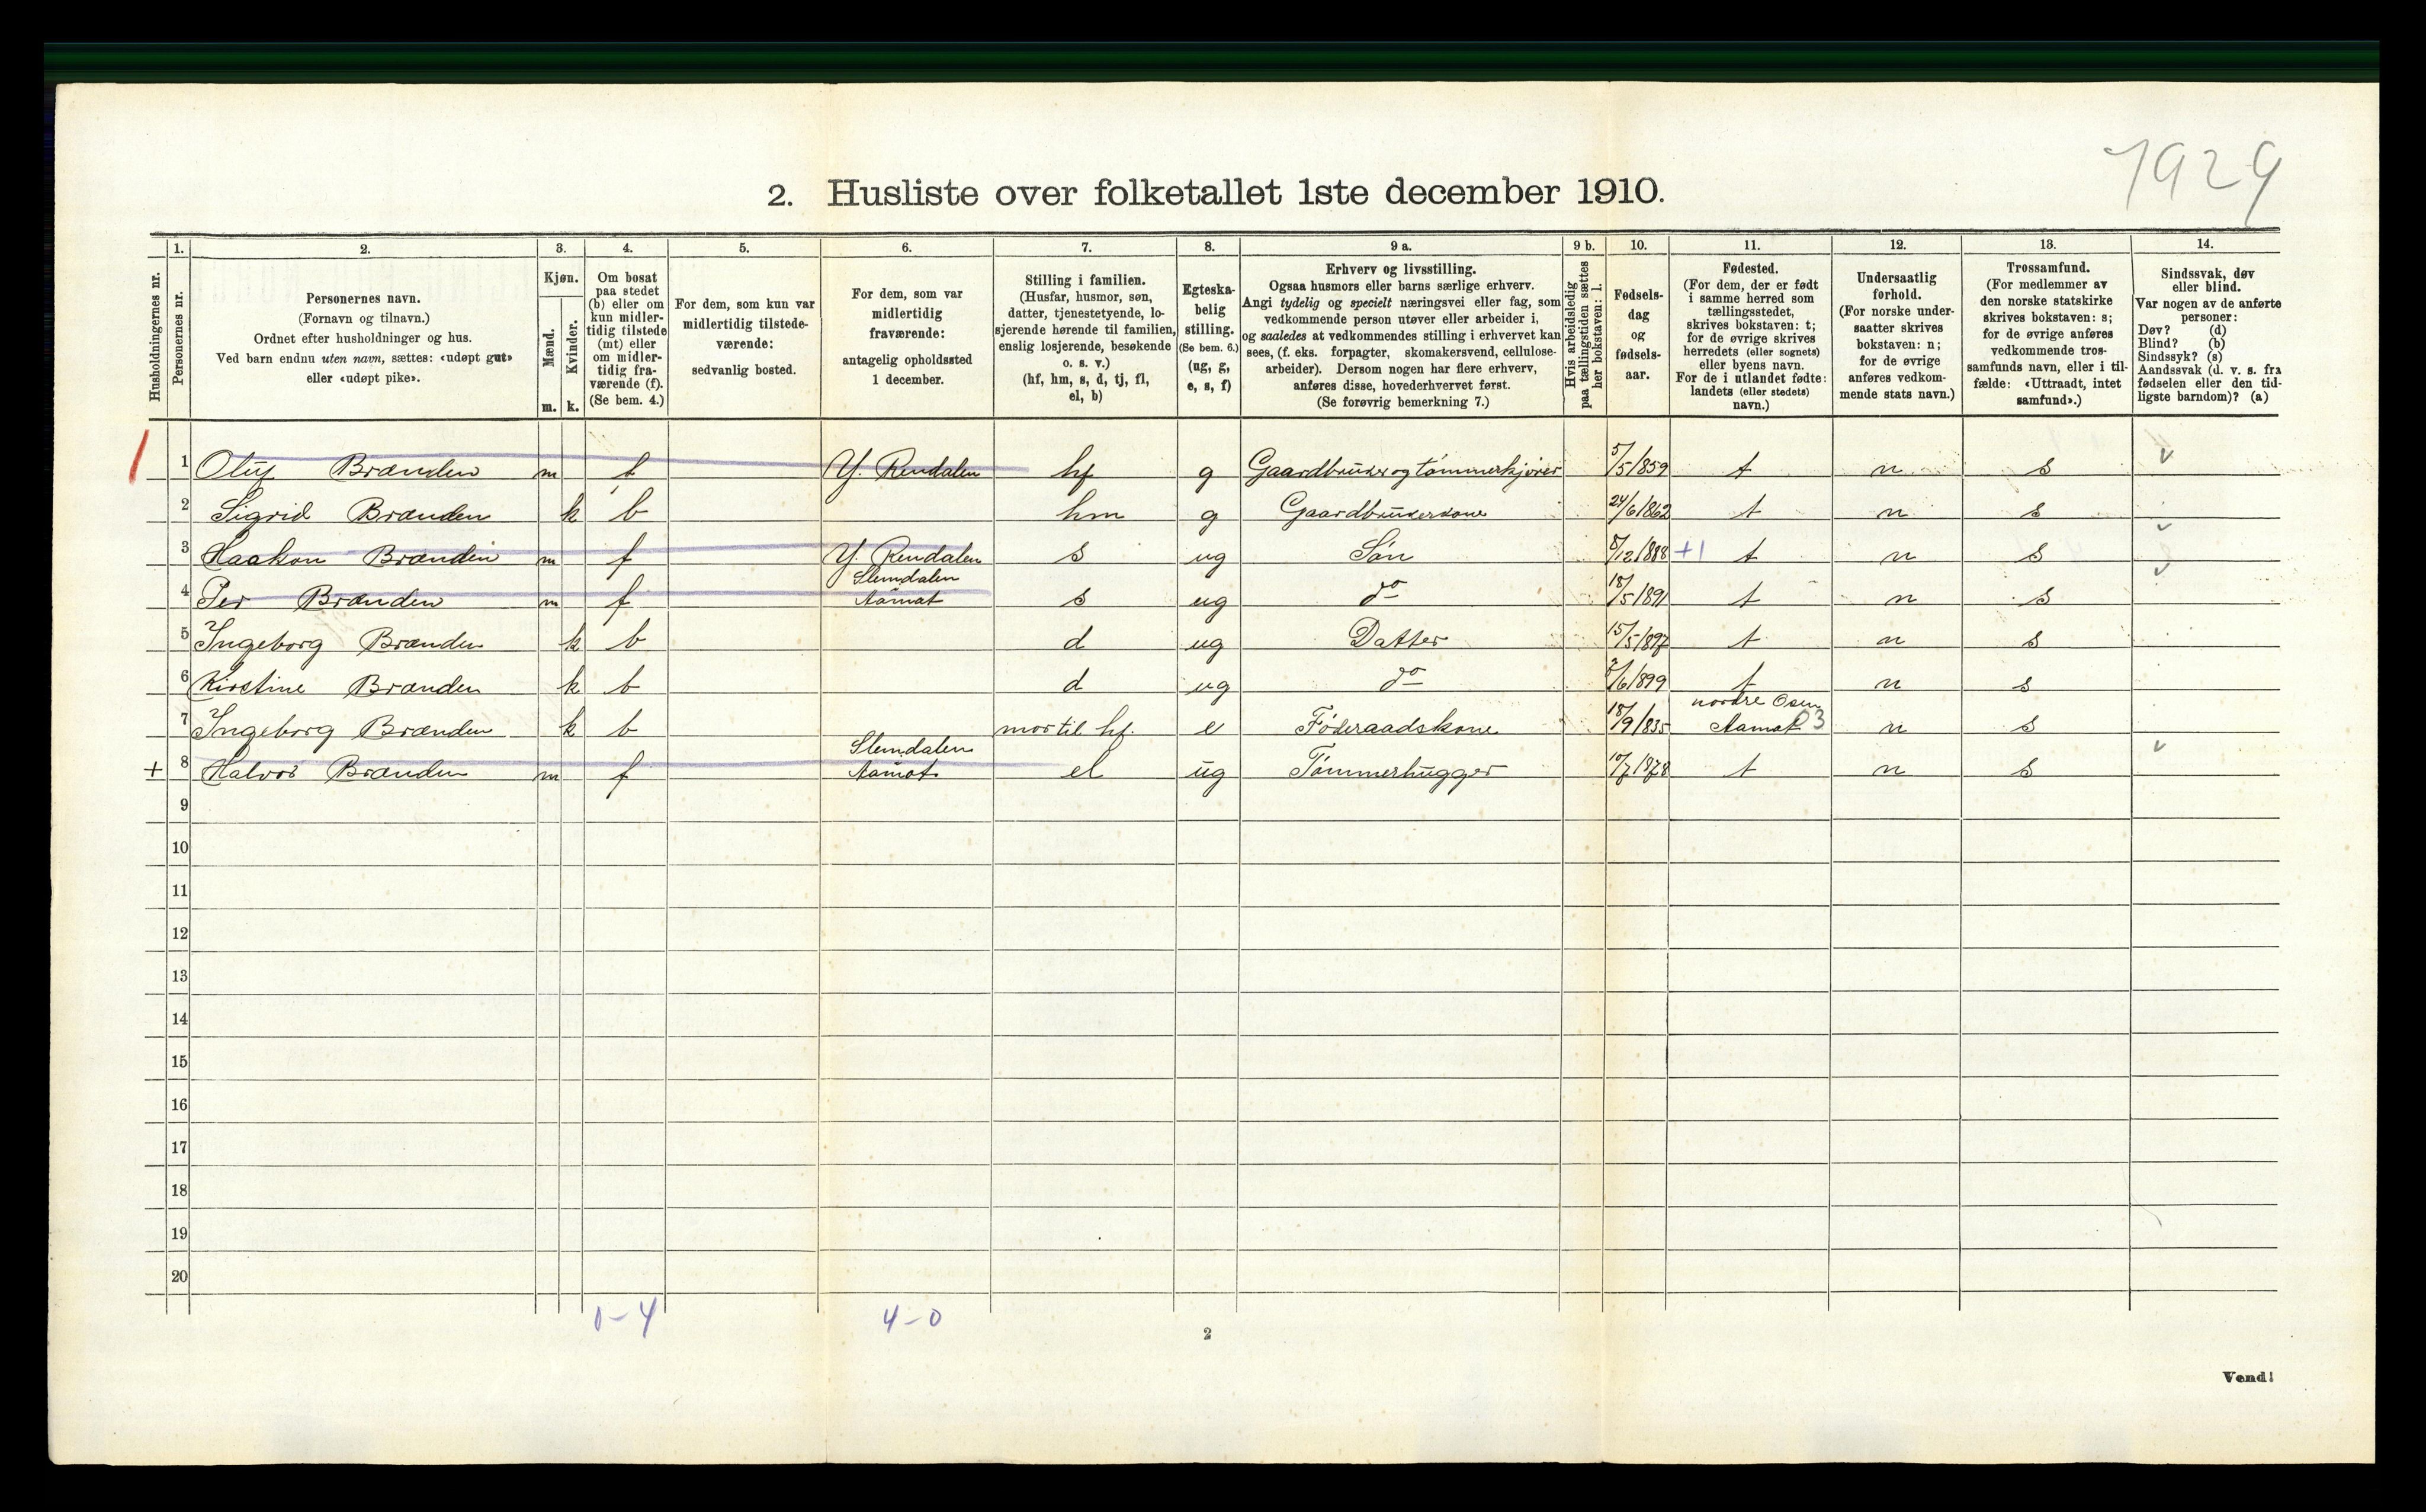 1929
2. Husliste over folketallet 1ste december 1910.
Husholdningernes nr.
1. Personernes nr.
2. Personernes navn.
(Fornavn og tilnavn.)
Ordnet efter husholdninger og hus.
Ved barn endnu uten navn, sættes: «udøpt gut»
eller «udøpt pike».
3. Kjøn.
Mænd. m.
Kvinder. k.
4. Om bosat
paa stedet
(b) eller om
kun midler-
tidig tilstede
(mt) eller
om midler-
tidig fra-
værende (f).
(Se bem. 4.)
5. For dem, som kun var
midlertidig tilstede-
værende:
sedvanlig bosted.
6. For dem, som var
midlertidig
fraværende:
antagelig opholdssted
1 december.
7. Stilling i familien.
(Husfar, husmor, søn,
datter, tjenestetyende, lo-
sjerende hørende til familien,
enslig losjerende, besøkende
o. s. v.)
(hf, hm, s, d, tj, fl,
el, b)
8. Egteska-
belig
stilling.
(Se bem. 6.)
(ug, g,
e, s, f)
9 a. Erhverv og livsstilling.
Ogsaa husmors eller barns særlige erhverv.
Angi tydelig og specielt næringsvei eller fag, som
vedkommende person utøver eller arbeider i,
og saaledes at vedkommendes stilling i erhvervet kan
sees, (f. eks. forpagter, skomakersvend, cellulose-
arbeider). Dersom nogen har flere erhverv,
anføres disse, hovederhvervet først.
(Se forøvrig bemerkning 7.)
9 b. Hvis arbeidsledig
paa tællingstiden sættes
her bokstaven: l.
10. Fødsels-
dag
og
fødsels-
aar.
11. Fødested.
(For dem, der er født
i samme herred som
tællingsstedet,
skrives bokstaven: t;
for de øvrige skrives
herredets (eller sognets)
eller byens navn.
For de i utlandet fødte:
landets (eller stedets)
navn.)
12. Undersaatlig
forhold.
(For norske under-
saatter skrives
bokstaven: n;
for de øvrige
anføres vedkom-
mende stats navn.)
13. Trossamfund.
(For medlemmer av
den norske statskirke
skrives bokstaven: s;
for de øvrige anføres
vedkommende tros-
samfunds navn, eller i til-
fælde: «Uttraadt, intet
samfund».)
14. Sindssvak, døv
eller blind.
Var nogen av de anførte
personer:
Døv? (d)
Blind? (b)
Sindssyk? (s)
Aandssvak (d. v. s. fra
fødselen eller den tid-
ligste barndom)? (a)
1 1 Oluf Brænden m Y. Rendalen hf g Gaardbruker og tømmerkjører 5/5/859 t n s v
2 Sigrid Brænden k b hm g Gaardbrukerkone 24/6/862 t n s
3 Haakon Brænden m f Y. Rendalen s ug Søn 8/12/888 +1 t n s v
4 Per Brænden m f Slemdalen Aamot s ug do 18/5/891 t n s v
5 Ingeborg Brænden k b d ug Datter 15/5/897 t n s
6 Kirstine Brænden k b d ug do /6/899 t n s
7 Ingeborg Brænden k b mor til hf. e Føderaadskone 18/9/835 nordre Osen Aamot 03 n s
+ 8 Halvor Brænden m f Slemdalen Aamot el ug Tømmerhugger 10/7/878 t n s v
9
10
11
12
13
14
15
16
17
18
19
20
0-4 4-0
2
Vend!